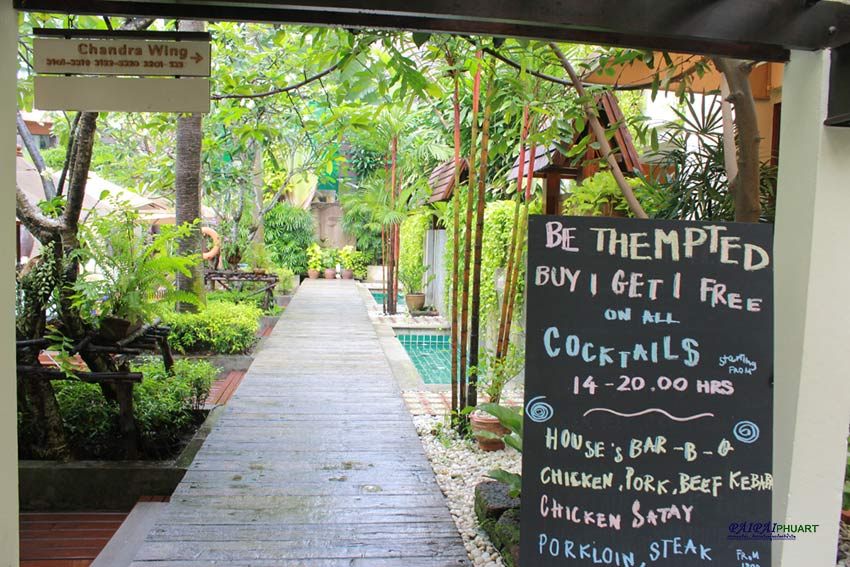 Chandra Wing
BE THEMPTED
BUY 1 GET 1 FREE
ON ALL
COCKTAILS
STARTING FROM
14-20.00 HRS
HOUSE'S BAR-B-Q
CHICKEN, PORK, BEEF KEBAB
CHICKEN SATAY
PORKLOIN, STEAK
FROM
PAIPAIPHUART